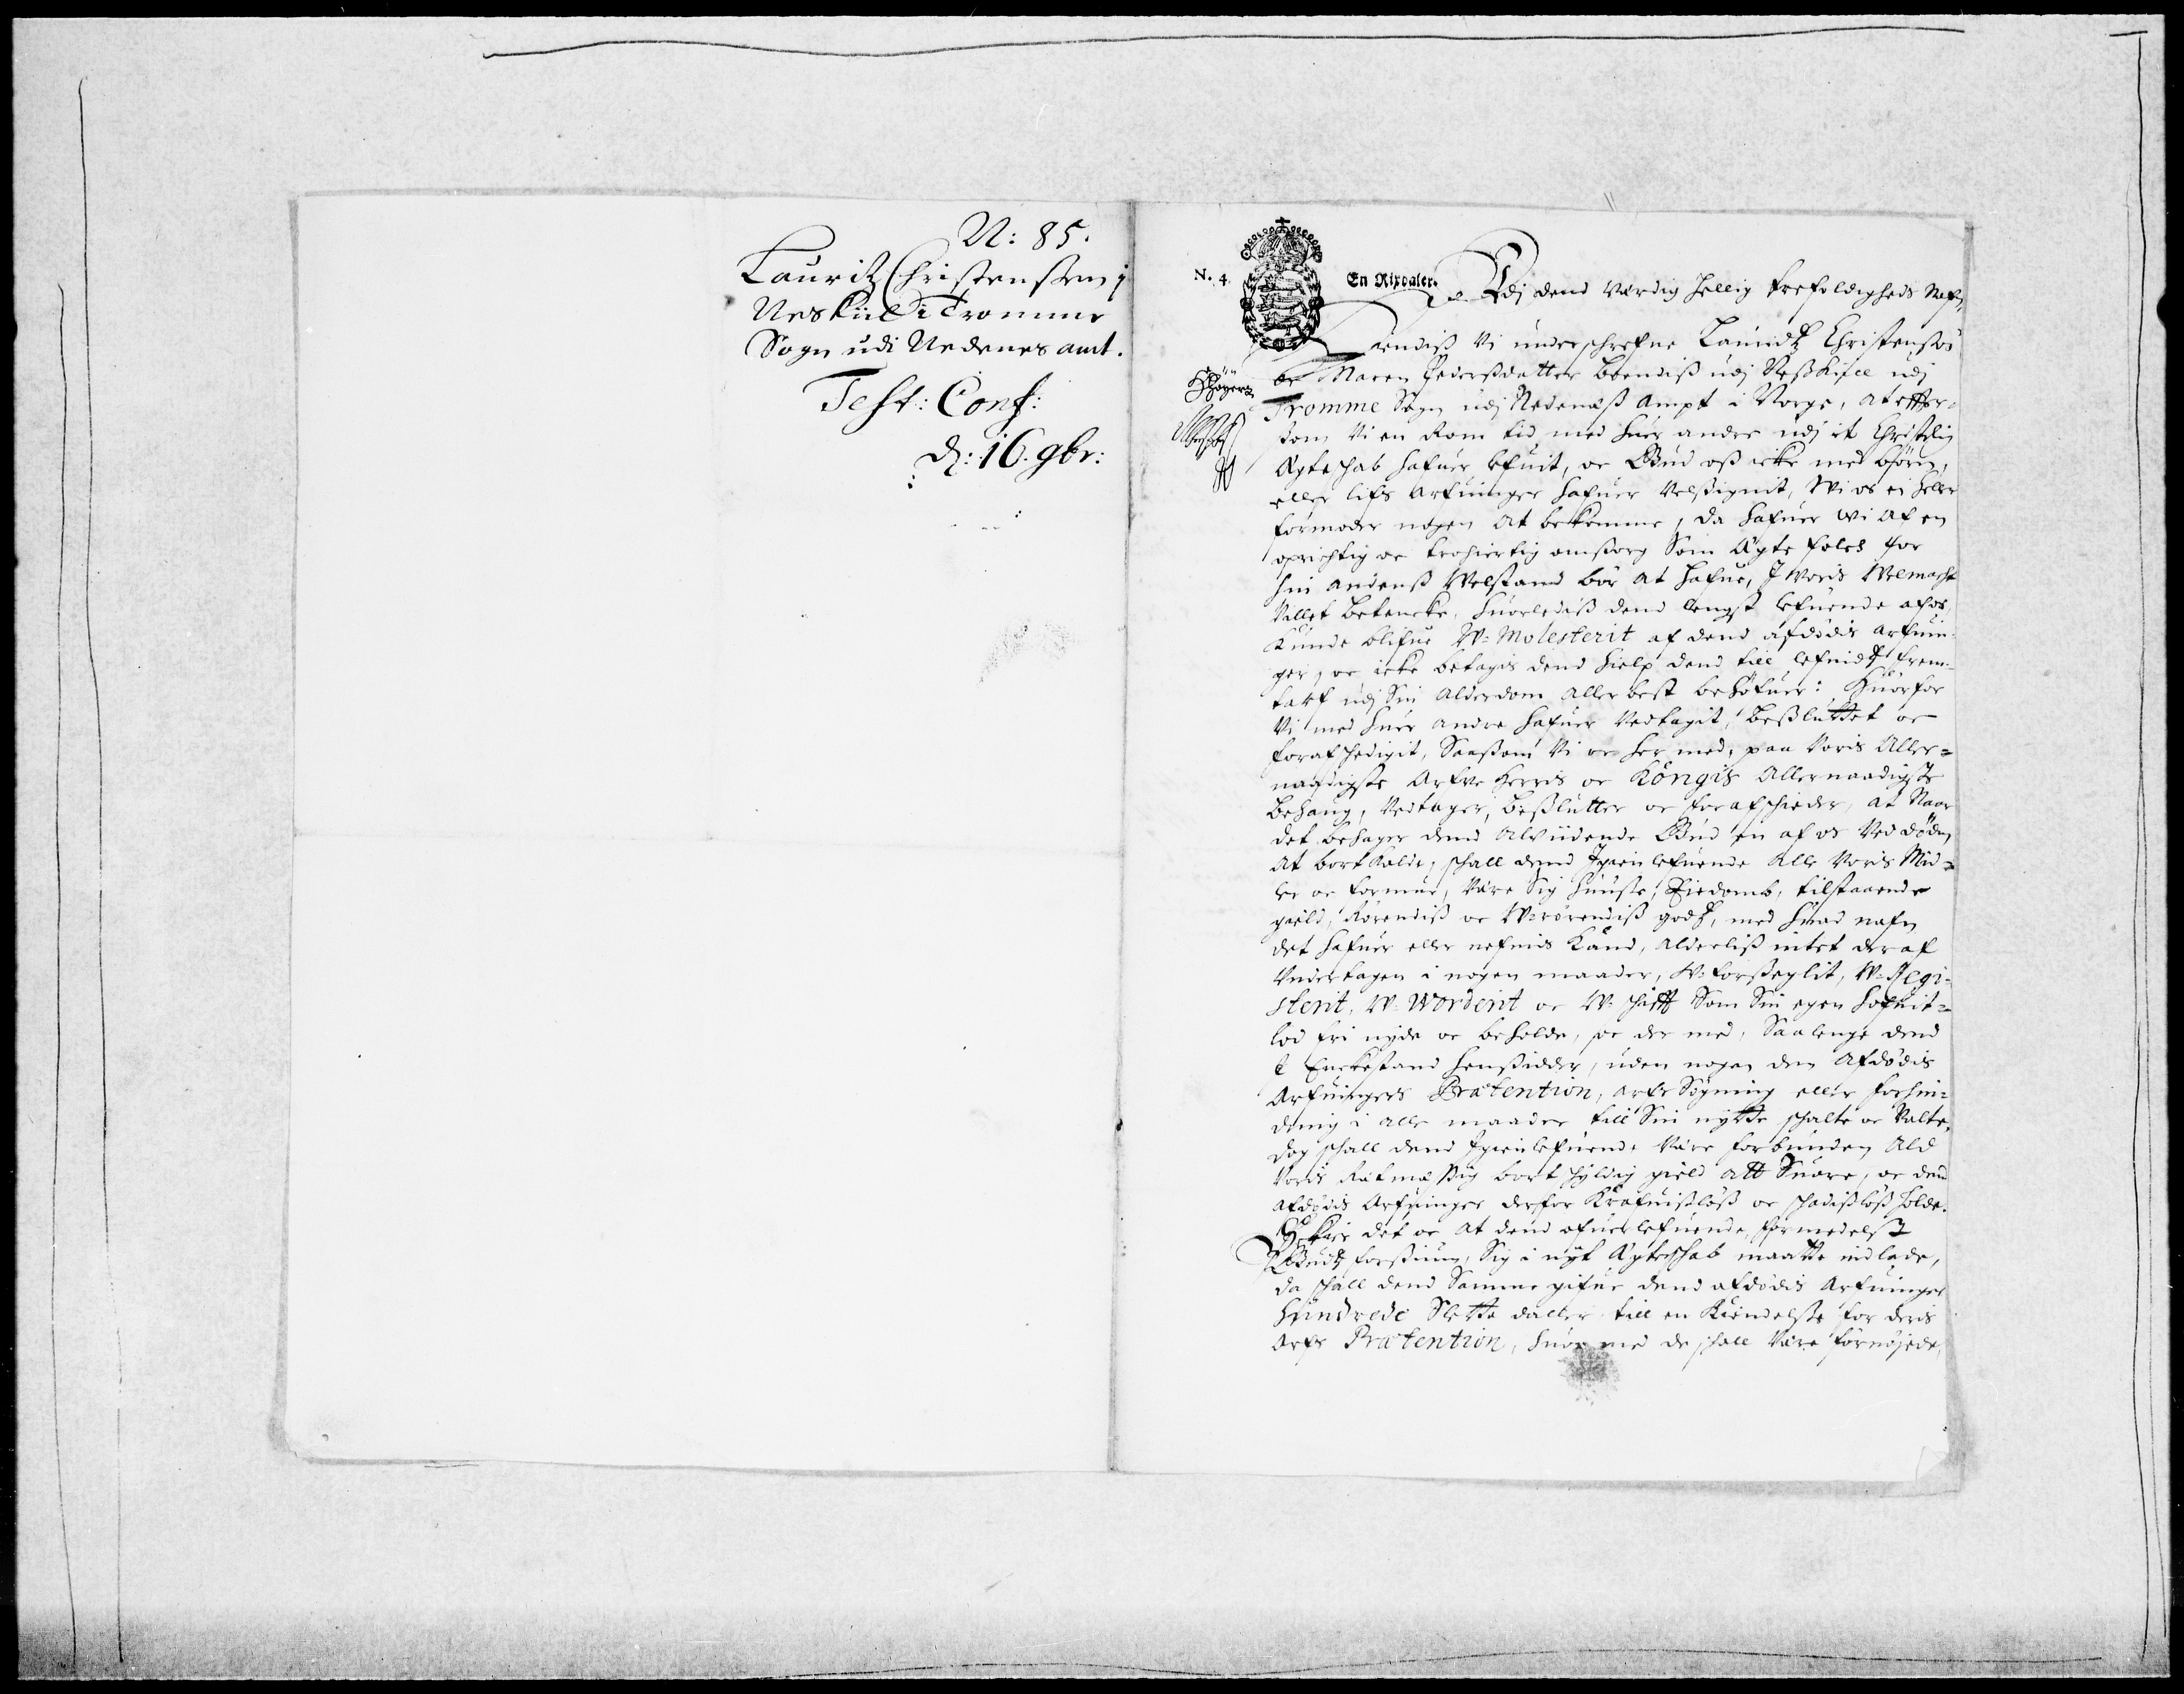 N: 85.
Lauritz Christensen i
Neskiil i Tromme
Sogn udi Nedenes amt.
Test: Conf:
d: 16. 9br:
N. 4.
En Rixdaler.
Udj dend Værdig hellig trefoldigheds Nafn,
Kiendiß Vi underschrefne Lauridtz Christensøn
oc Maren Pedersdatter boendiß udj Neßkiill udj
Tromme Sogn udj Nedenæß Ampt i Norge, at effter-
som Vi en Rom tid med huer andre udj et Christelig
Ægteschab hafuer lefuit, oc Gud oß icke med børn,
eller lifs arfuinger hafuer Velsignit, Wi os ei heller
formoder nogen at bekomme, da hafuer wi af en
oprichtig oc trohiertig omsorg Som Ægte folck for
hin andens Welstand bør at hafue, J Voris Velmacht
Villet betencke, huorlediß dend lengst lefuende af os,
kunde blifue W-Molesterit af dend afdødis arfuin-
ger, oc icke betagis dend hielp dend till lefnidtz frem-
tarf udj Sin Alderdom aller best behøfuer: Huorfor
Vi med huer andre hafuer Vedtagit, Beßluttet oc
forafschedigit, Saasom Vi oc her med, paa Voris Aller-
naadigste Arfve Herris oc Kongis Allernaadigste
Behaug, Vedtager, beßlutter oc forafschieder, at Naar
det behager dend Alviidende Gud en af os Ved døden
at bortkalde, schall dend Igienlefuende alle Voris Mid-
ler oc formue, Være Sig huuse, Eiedomb, tilstaaende
gield, Rørendiß oc W-rørendiß godtz, med huad nafn
det hafuer eller nefnis kand, alderliß intet der af
Undertagen i nogen maader, W-forseglit, W-Regi-
sterit, W-Worderit oc W-schifft Som Sin egen hofuit-
lod fri nyde oc beholde, oc der med, Saalenge dend
i Enckestand hensidder, uden nogen den Afdødis
Arfuingers Prætention, arfs Søgning eller forhin-
dring i alle maader till Sin nytte schalte oc Valte,
dog schall dend Igienlefuende Være forbunden Ald
Voris Retmæssig bort schyldig gield att Suare, oc dend
afdødis Arfuinger derfor krafuißløß oc schadißløß holde.
Skeer det oc at dend ofuerlefuende, formedelst
Gudtz forsiun, Sig i nyt Ægteschab maatte indlade,
da schall dend Samme gifue dend afdødis Arfuinger
Hundrede Slette daller till en Kiendelse for deris
Arfs Prætention, huor med de schall Være fornøjede,